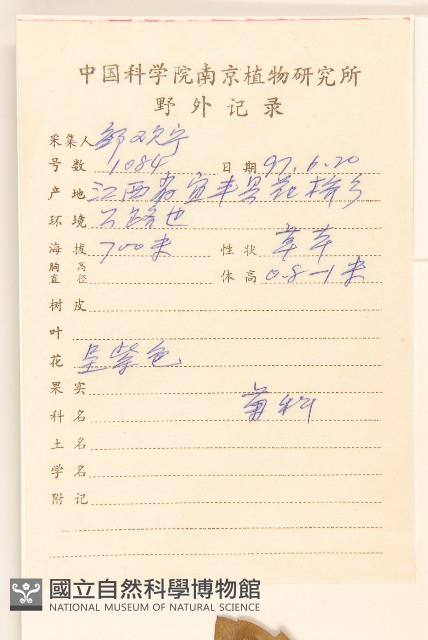 中国科学院南京植物研究所
野外记录
采集人 邹欢宁
号数 1084 日期 97.6.20
产地 江西省宜丰县花桥乡
环境
海拔 700米 性状 草本
胸高直径 体高 0.8-1米
树皮
叶
花 呈紫色.
果实
科名 菊科
土名
学名
附记
國立自然科學博物館
NATIONAL MUSEUM OF NATURAL SCIENCE